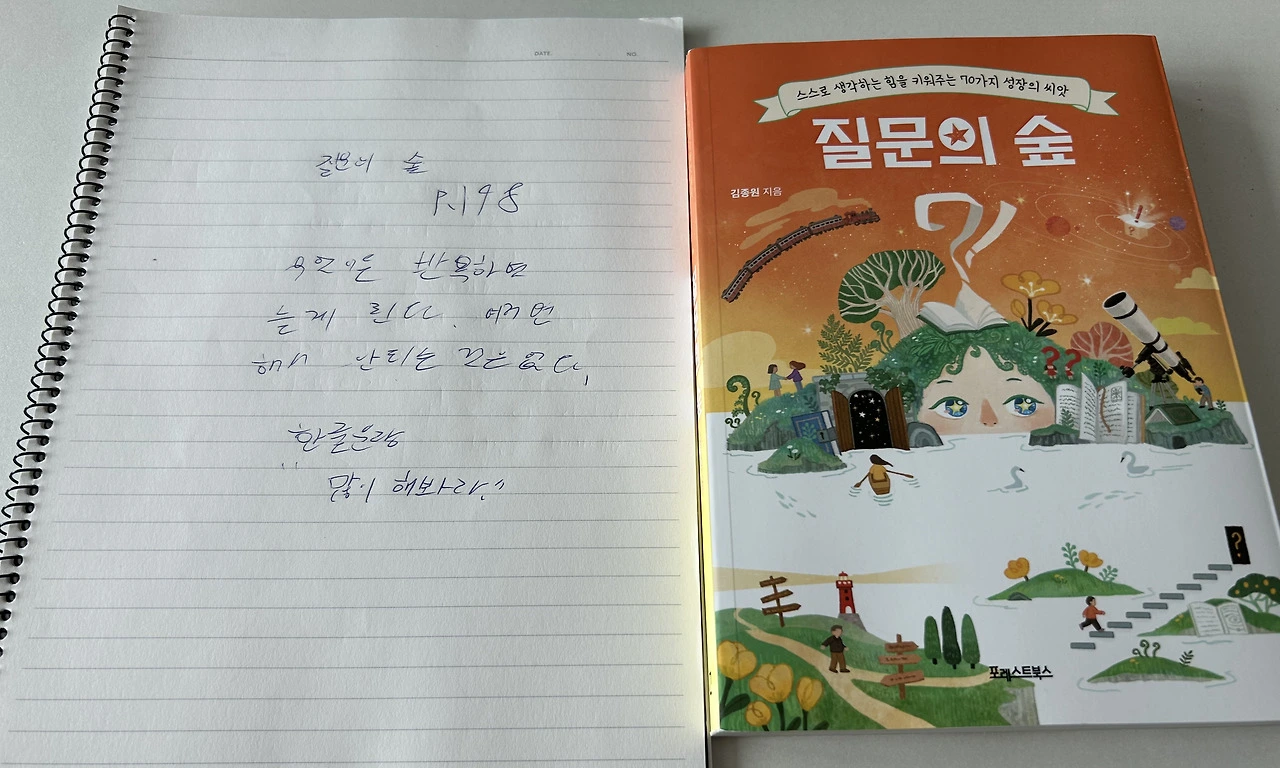 DATE. NO.
질문의 숲
P.198
반복하면
늘게 된다. 여러번
해서 안되는 것은 없다.
한글은
많이 해보라
스스로 생각하는 힘을 키워주는 70가지 성장의 씨앗
질문의 숲
김종원 지음
??
?
포레스트북스